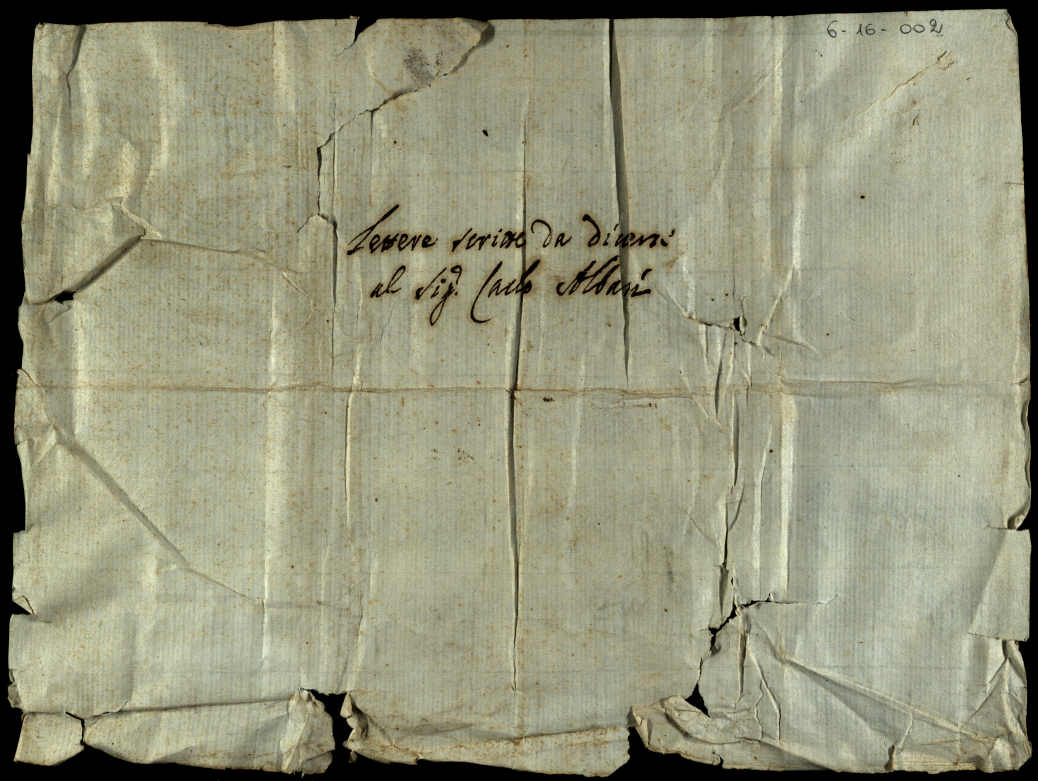 6-16-002
Lettere scritte da diversi
al Sig.r Carlo Albani